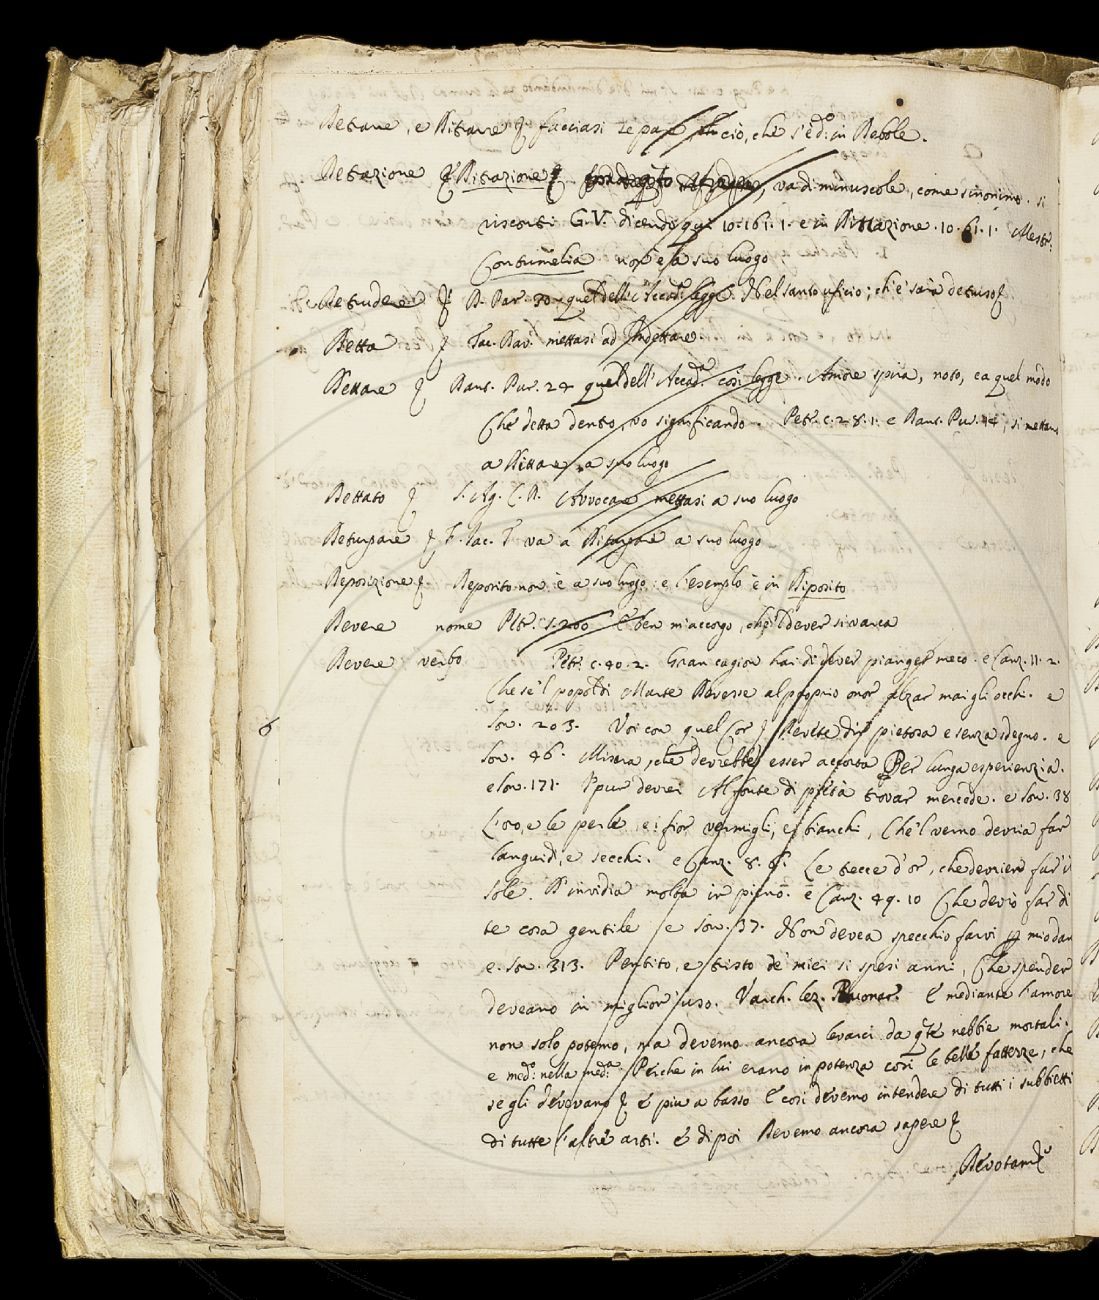 Detrarre, e Ditrarre facciasi ciò, che s'è d.o in Debole.
Detrazione Ditrazione va di minuscole, come sinonimo. si
riscontri G.V. dicendo qui 10.161.1. e in Dittazione. 10.61.1. Mestr:
Contumelia non è a suo luogo
Detrudere D. Par. 30. quel dell'Accad. legge. Nel santo uficio; ch'e' sarà detruso
Detta Tac. Dav. mettasi ad Indettare.
Dettare Dant. Pur. 24 quel dell'Accad.a così legge. Amore spira, noto, e a quel modo
Che detta dentro, vo significando. Petr. c. 28. 1. e Dant. Pur. 14, si mettano
a Dittare a suo luogo
Dettato S. Ag. C. D. Avvocare mettasi a suo luogo
Deturpare F. Iac. T. va a Diturpare a suo luogo
Deposizione Deposito non è a suo luogo: e l'esemplo è in Diposito
Devere nome Petr. s. 200 E ben m'accorgo, che'l dever si varca
Devere verbo Petr. c. 40. 2. Gran cagion hai di dever pianger meco. e Canz. 11. 2.
Che se'l popol di Marte Devesse al proprio onor alzar mai gli occhi. e
Son. 203. Voi con quel Cor Devete dir pietosa e senza sdegno. e
Son. 46. Misera, che devrebbe esser accorta Per lunga esperienzia.
e Son. 171. I' pur devrei Al fonte di pietà trovar mercede. e Son. 38
L'oro, e le perle, e i fior vermigli, e i bianchi, Che'l verno devria far
languidi, e secchi. e Canz. 8. 6. Le trecce d'or, che devrien far il
sole D'invidia molta ir pieno. e Canz. 49. 10 Che deviò far di
te cosa gentile e Son. 37. Non devea specchio farvi p mio dan
e. Son. 313. Pentito, e tristo de' miei si spesi anni, Che spender
deveano in miglior uso. Varch. lez. E mediante l'amore
non solo potemo, ma devemo ancora levarci da q.te nebbie mortali.
e med.o nella med.a Perche in lui erano in potenza così le belle fattezze, che
se gli devevano e più a basso E così devemo intendere di tutti i subbietti
di tutte l'altre arti. e di poi Devemo ancora sapere
Devotam.te